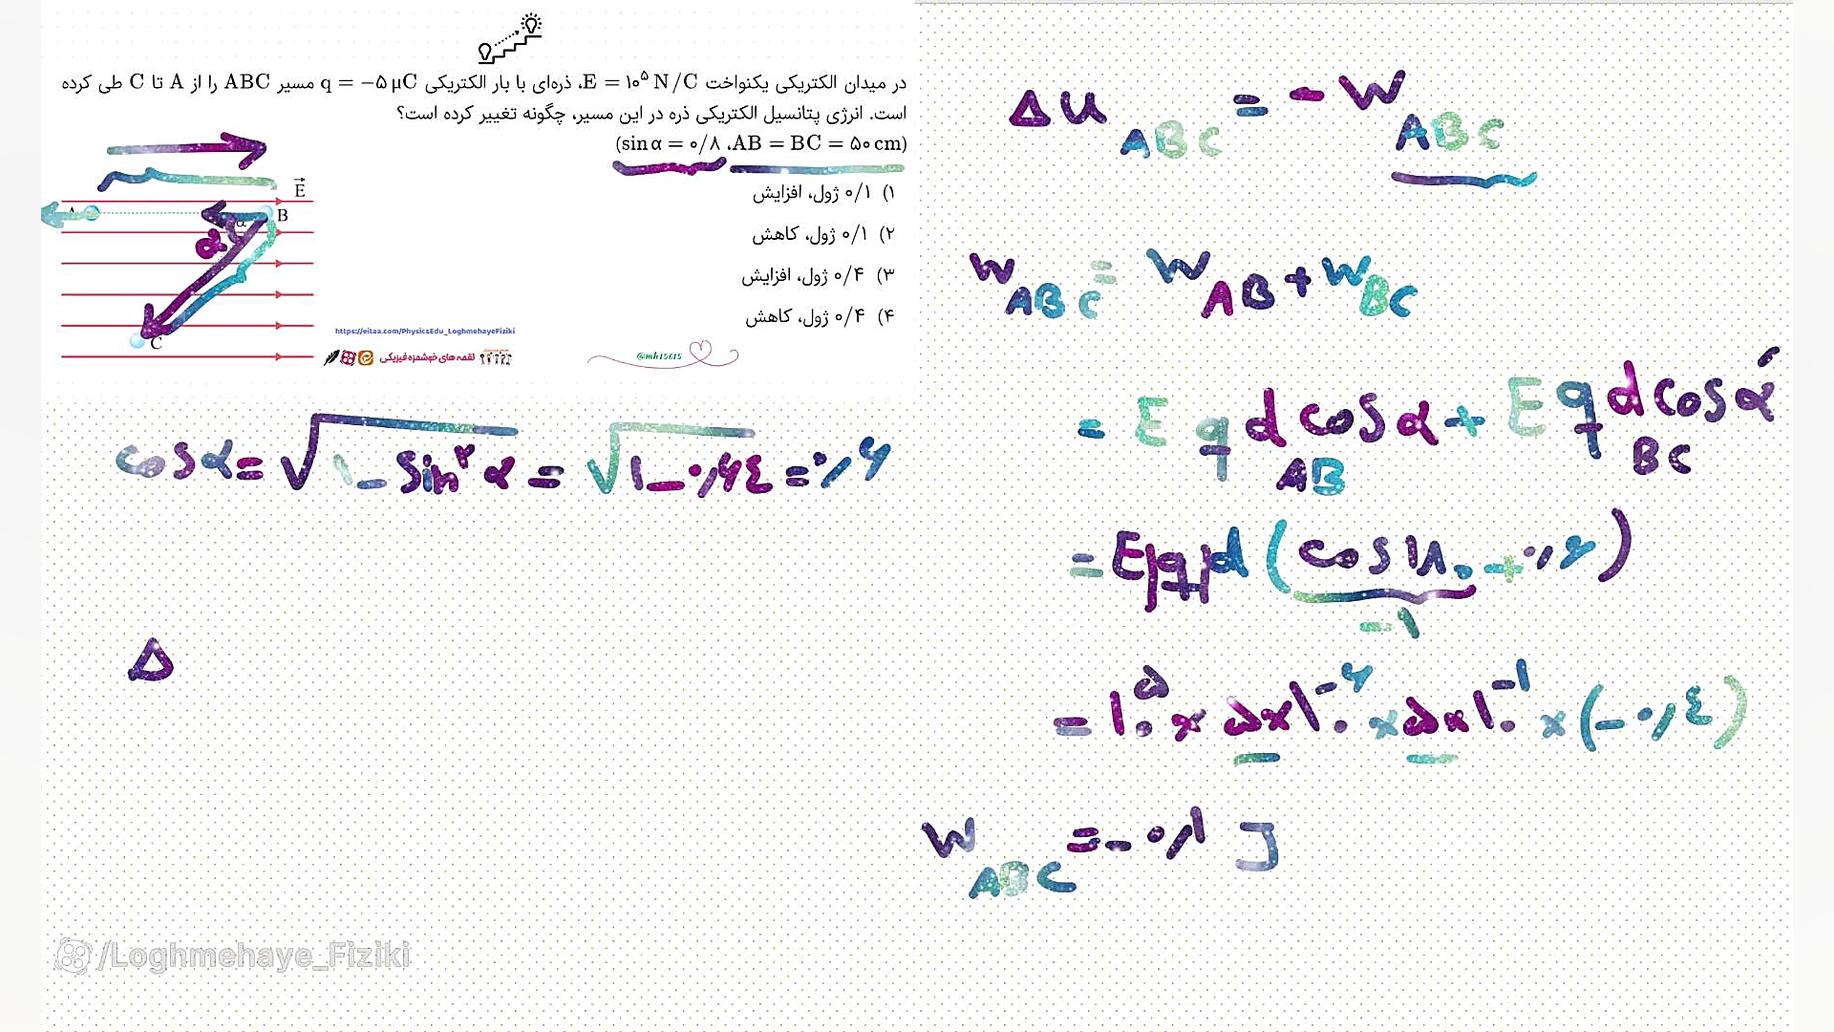 در میدان الکتریکی یکنواخت E = ۱۰⁵ N/C، ذره‌ای با بار الکتریکی q = −۵ μC مسیر ABC را از A تا C طی کرده
است. انرژی پتانسیل الکتریکی ذره در این مسیر، چگونه تغییر کرده است؟
(sin α = ۰/۸ ،AB = BC = ۵۰ cm)
۱) ۰/۱ ژول، افزایش
۲) ۰/۱ ژول، کاهش
۳) ۰/۴ ژول، افزایش
۴) ۰/۴ ژول، کاهش
E
A B
α α
C
https://eitaa.com/PhysicsEdu_LoghmehayeFiziki
لقمه های خوشمزه فیزیکی
@mh15615
cos α = √(۱ − sin² α) = √(۱ − ۰/۶۴) = ۰/۶
Δ
Δu ABC = − W ABC
W ABC = W AB + W BC
= E q d AB cos α + E q d BC cos α′
= E|q|d (cos ۱۸۰ + ۰/۶)
−۱
= ۱۰⁵ × ۵×۱۰⁻⁶ × ۵×۱۰⁻¹ × (−۰/۴)
W ABC = − ۰/۱ J
/Loghmehaye_Fiziki